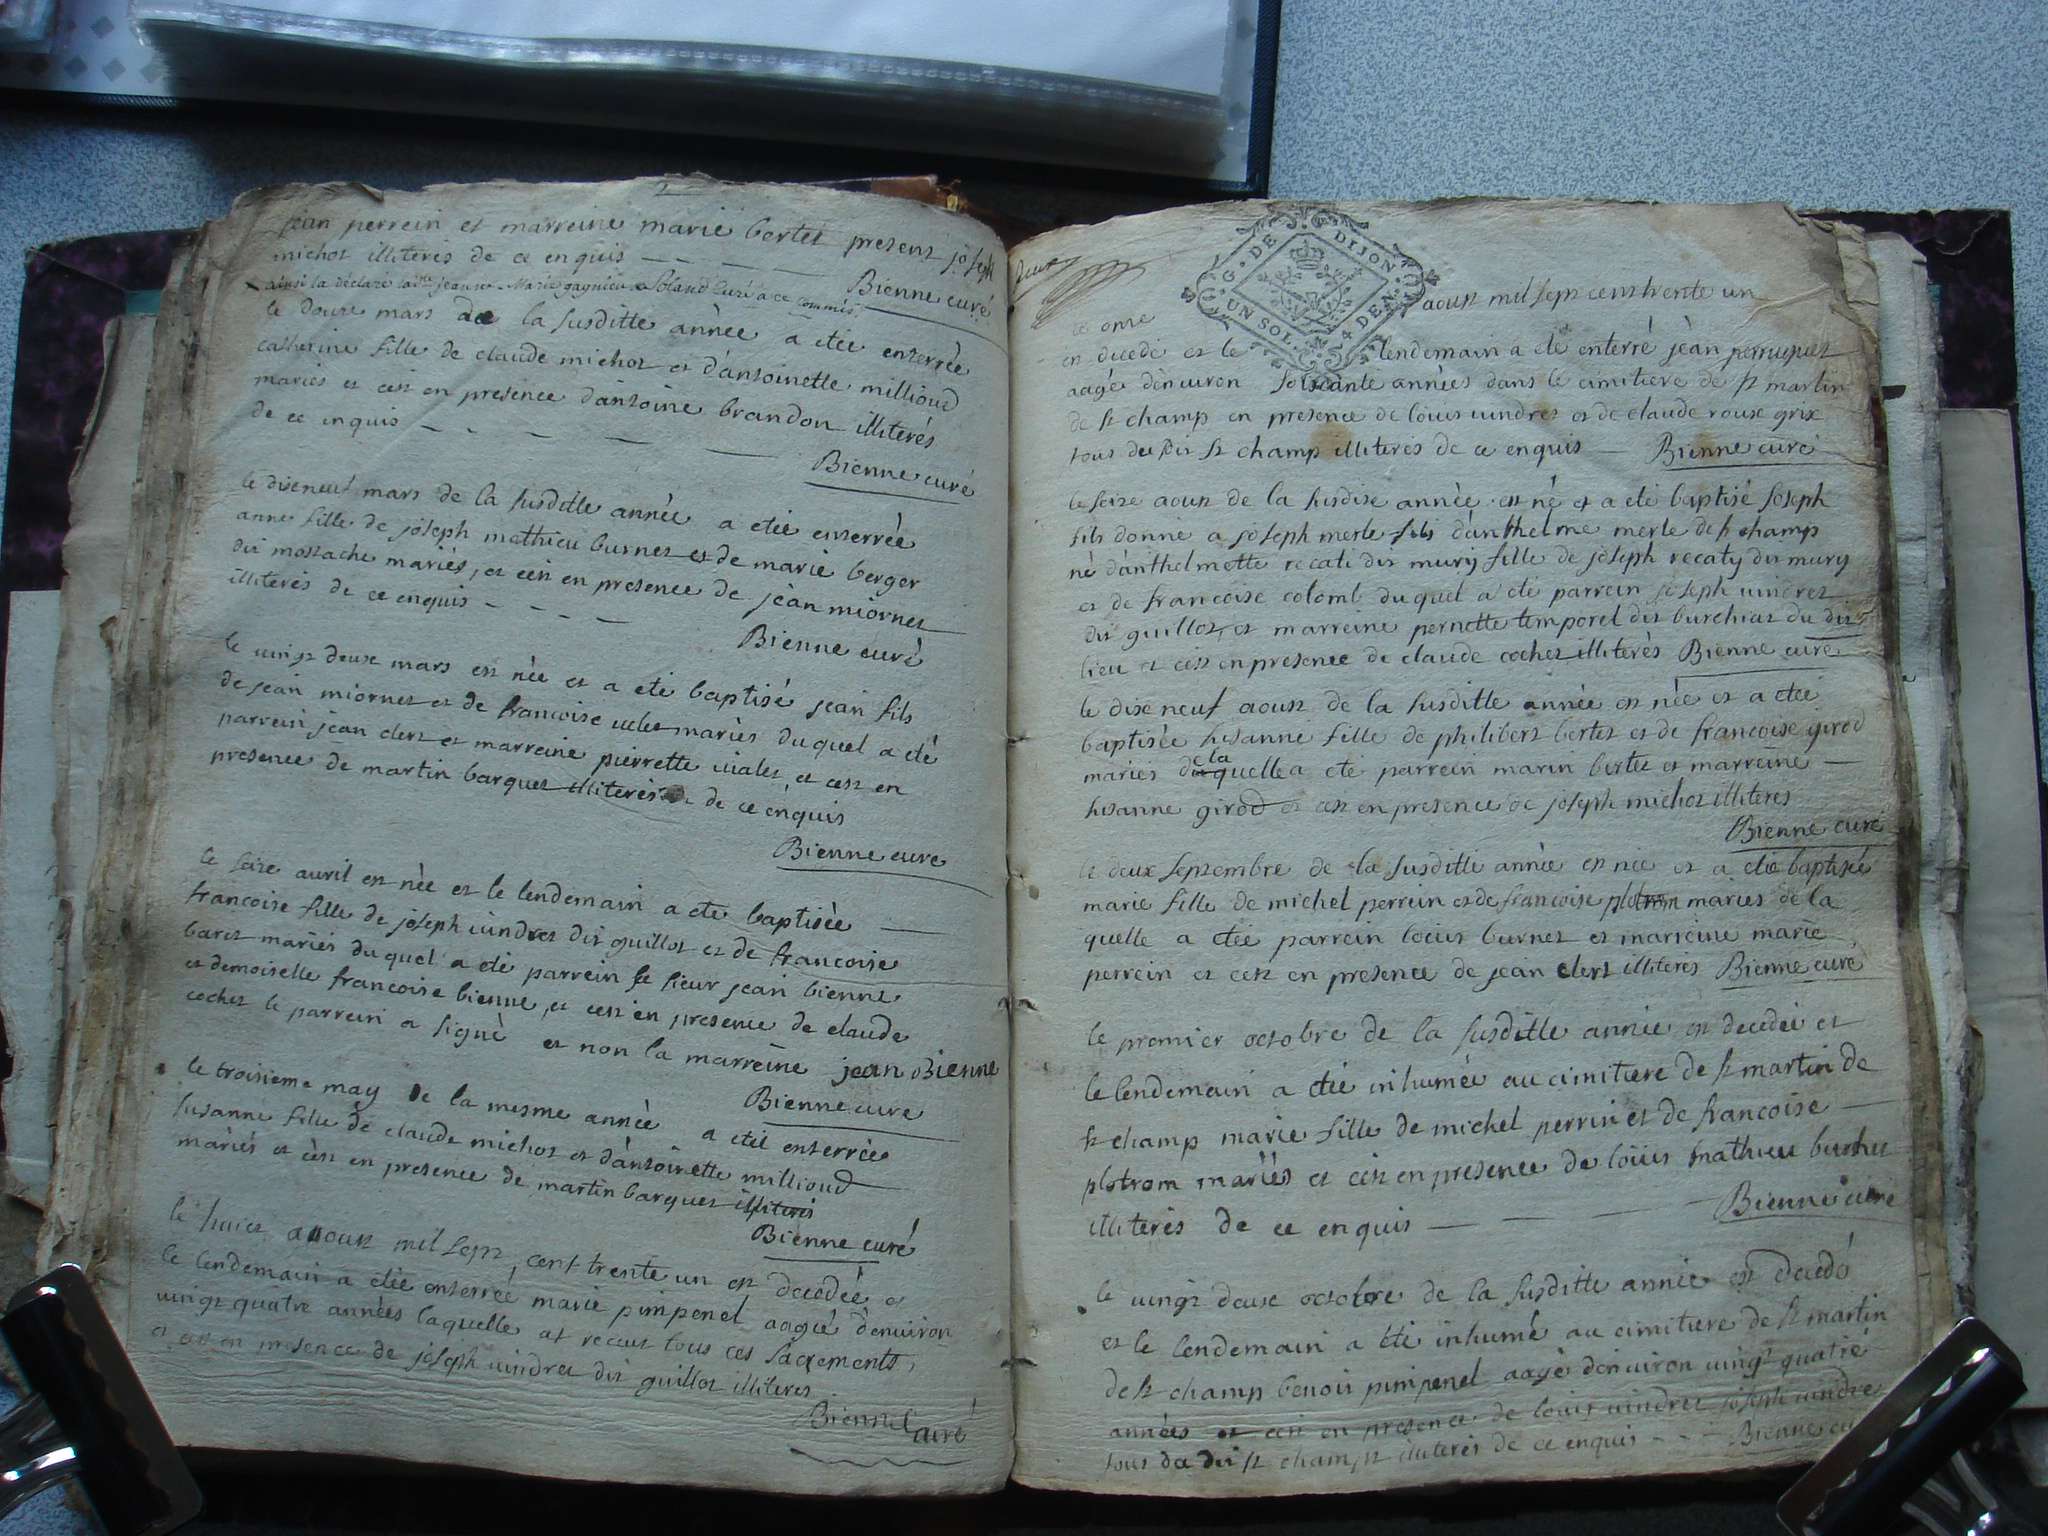 jean perrein et marreine marie bertet present joseph
michot illiterés de ce enquis
Bienne curé
ainsi la déclaré jeanne Marie gagnieu curé a ce commis
le douze mars de la susditte année a etée enterrée
catherine fille de claude michot et d'antoinette millioud
mariés et cest en presence d'antoine brandon illiterés
de ce enquis
Bienne curé
le dixeneuf mars de la susditte année a etée enterrée
anne fille de joseph mathieu burnet et de marie berger
dit mostache mariés, et cest en presence de jean miornet
illiterés de ce enquis
Bienne curé
le vingt deuxe mars est née et a eté baptisé jean fils
de jean miornet et de francoise mariés du quel a eté
parrein jean clert et marreine pierrette vialet, et cest en
presence de martin barquet illiterés de ce enquis
Bienne cure
le seize auril est née et le lendemain a ete baptisée
francoise fille de joseph vindret dit guillot et de francoise
baret mariés du quel a eté parrein le sieur jean bienne
et demoiselle francoise bienne, et cest en presence de claude
cochet le parrein a signé et non la marreine jean Bienne
Bienne cure
le troisieme may de la mesme année a etée enterrée
susanne fille de claude michot et d'antoinette millioud
mariés et cest en presence de martin barquet illiterés
Bienne curé
le huict aoust mil sept cent trente un est decedée et
le lendemain a etée enterrée marie pimpenel aagée denuiron
vingt quatre années laquelle at receut tous ces sacrements,
et cest en presence de joseph vindret dit guillot illiteres
Bienne curé
deux
G. DE DIJON
UN SOL. 4 DEN.
le onze aoust mil sept cent trente un
est decedé et le lendemain a eté enterré jean perruquet
aagé denuiron soixante années dans le cimitiere de st martin
de st champ en presence de louis vindret et de claude roux grix
tous du dit st champ illiterés de ce enquis Bienne curé
le seize aoust de la susdite année est né et a eté baptisé joseph
fils donné a joseph merle fils d'anthelme merle de st champ
né d'anthelmette recati dit mury fille de joseph recaty dit mury
et de francoise colomb du quel a eté parrein joseph vindret
dit guillot, et marreine pernette temporel dit burchiat du dit
lieu et cest en presence de claude cochet illiterés Bienne curé
le dixe neuf aoust de la susditte année est née et a etée
baptisée susanne fille de philibert bertet et de francoise girod
mariés de la quelle a eté parrein marin bertet et marreine
susanne girod et cest en presence de joseph michot illiteres
Bienne curé
le deux septembre de la susditte année est née et a eté baptisée
marie fille de michel perrein et de francoise plotrom mariés de la
quelle a etée parrein louis burnet et marreine marie
perrein et cest en presence de jean clert illiterés Bienne curé
le premier octobre de la susditte année est decedée et
le lendemain a etée inhumée au cimitiere de st martin de
st champ marie fille de michel perrin et de francoise
plotrom mariés et cest en presence de louis mathieu
illiterés de ce enquis Bienne curé
le vingt deuxe octobre de la susditte année est decedé
et le lendemain a eté inhumé au cimitiere de st martin
de st champ benoit pimpenel aagé denuiron vingt quatre
années et cest en presence de louis vindret joseph vindret
tous du dit st champ illiterés de ce enquis Bienne cu